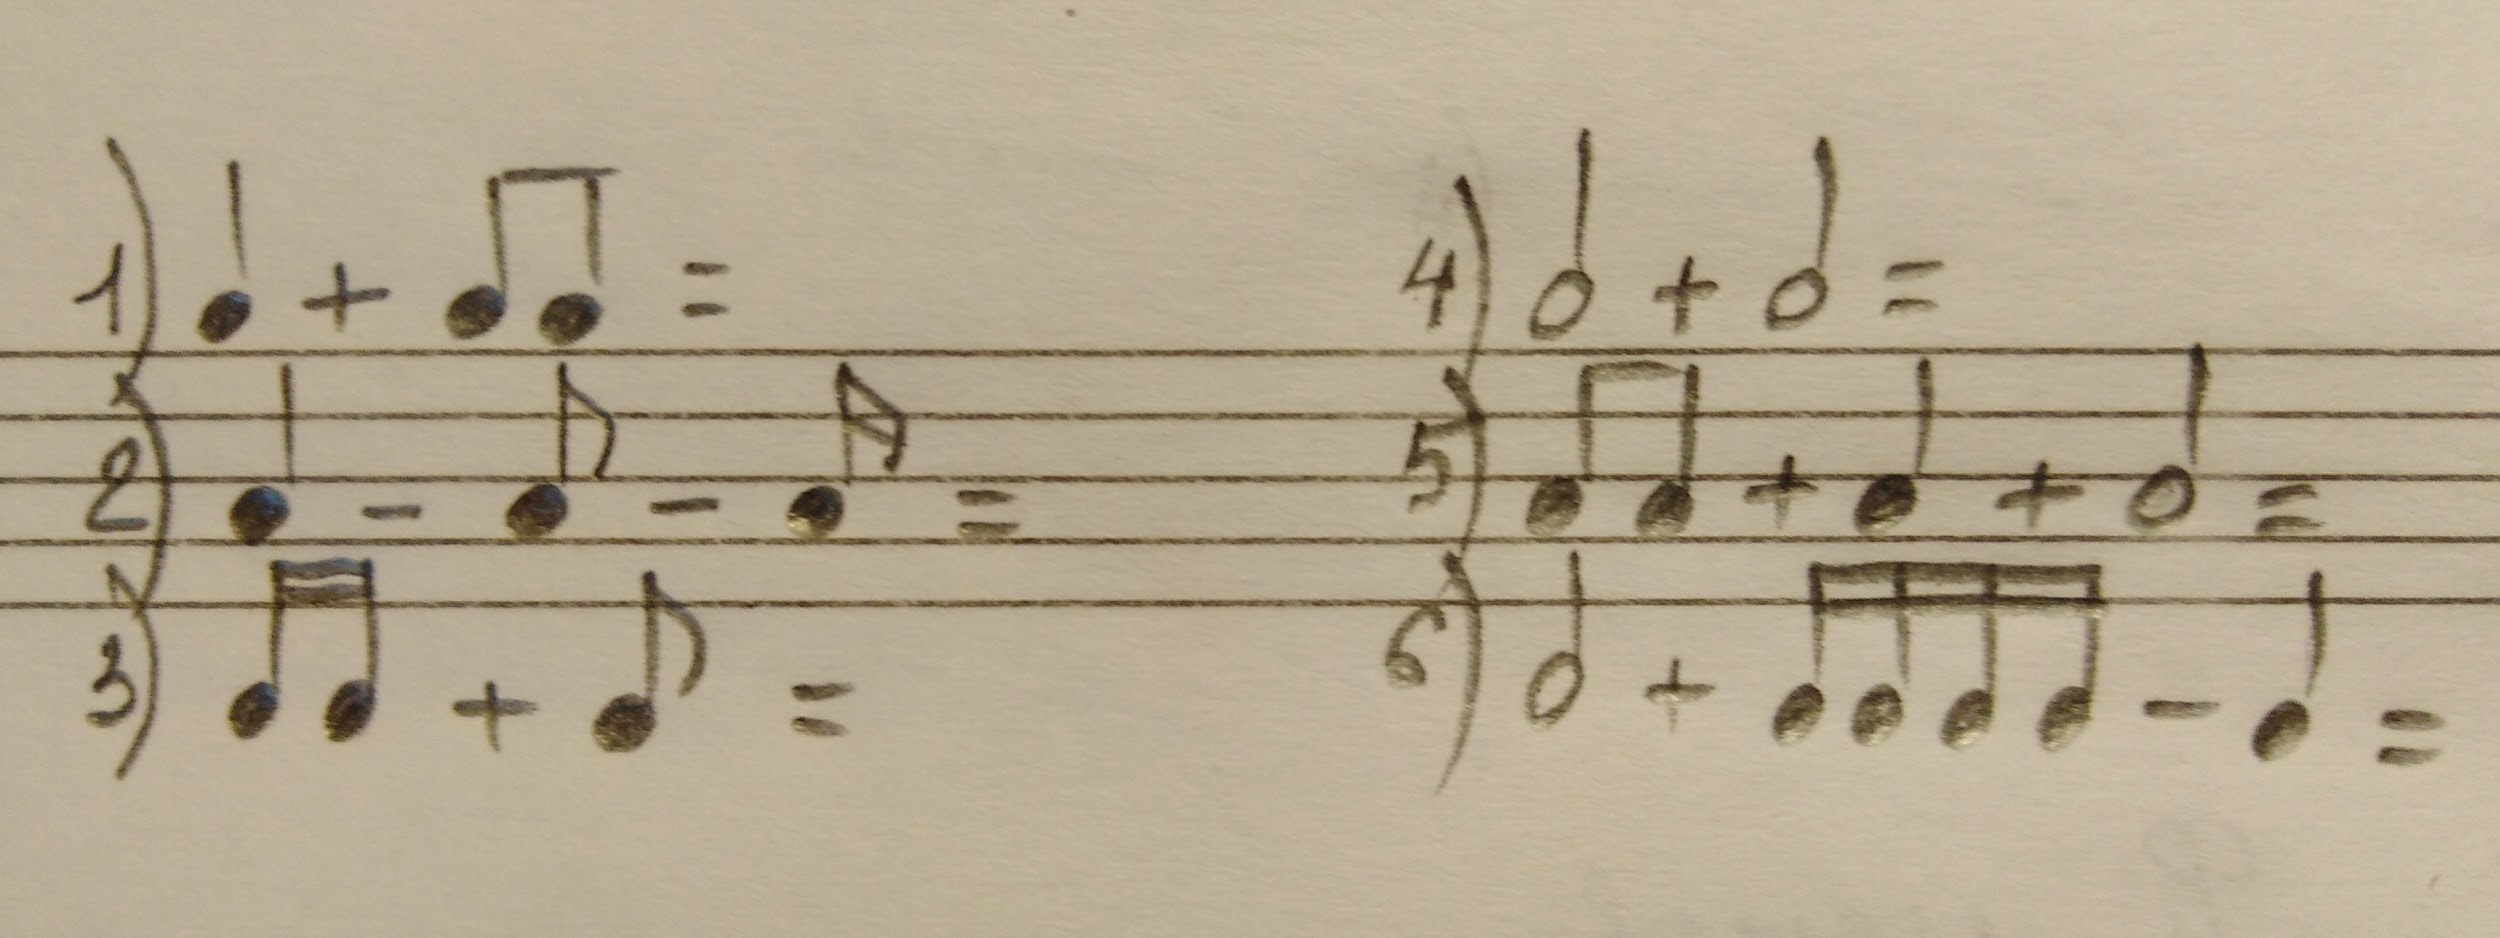 1) ♩ + ♫ =
2) ♩ - ♪ - 𝅘𝅥𝅯 =
3) ♬ + ♪ =
4) 𝅗𝅥 + 𝅗𝅥 =
5) ♫ + ♩ + 𝅗𝅥 =
6) 𝅗𝅥 + 𝅘𝅥𝅯𝅘𝅥𝅯𝅘𝅥𝅯𝅘𝅥𝅯 - ♩ =